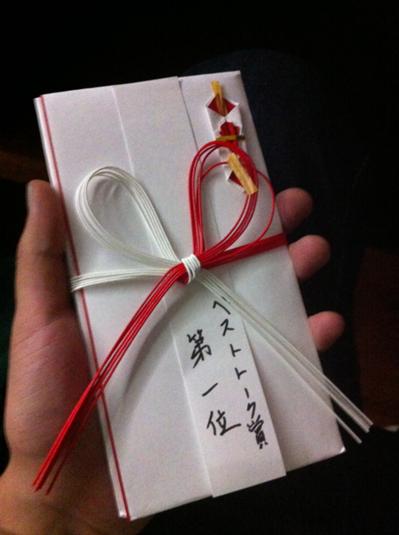 ベストトーク賞
第一位